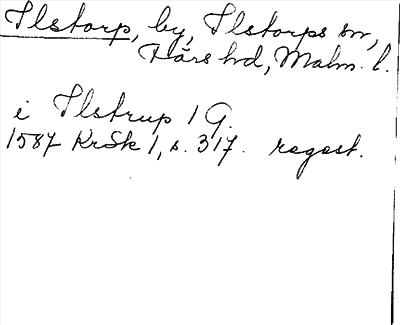 Ilstorp, by, Ilstorps sn,
Färs hd, Malm. l.
i Ilstrup 1 G.
1587 KrSk 1, s. 317. regest.